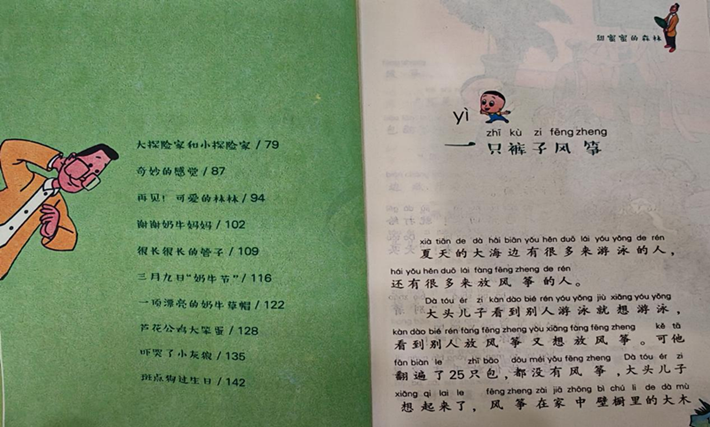 大探险家和小探险家 / 79
奇妙的感觉 / 87
再见！可爱的林林 / 94
谢谢奶牛妈妈 / 102
很长很长的管子 / 109
三月九日“奶牛节” / 116
一顶漂亮的奶牛草帽 / 122
芦花公鸡大笨蛋 / 128
吓哭了小灰狼 / 135
斑点狗过生日 / 142
甜蜜蜜的森林
yì zhī kù zi fēng zheng
一只裤子风筝
xià tiān de dà hǎi biān yǒu hěn duō lái yóu yǒng de rén
夏天的大海边有很多来游泳的人，
hái yǒu hěn duō lái fàng fēng zheng de rén
还有很多来放风筝的人。
Dà tóu ér zi kàn dào bié rén yóu yǒng jiù xiǎng yóu yǒng
大头儿子看到别人游泳就想游泳，
kàn dào bié rén fàng fēng zheng yòu xiǎng fàng fēng zheng kě tā
看到别人放风筝又想放风筝。可他
fān biàn le zhī bāo dōu méi yǒu fēng zheng Dà tóu ér zi
翻遍了25只包，都没有风筝，大头儿子
xiǎng qǐ lai le fēng zheng zài jiā zhōng bì chú li de dà mù
想起来了，风筝在家中壁橱里的大木